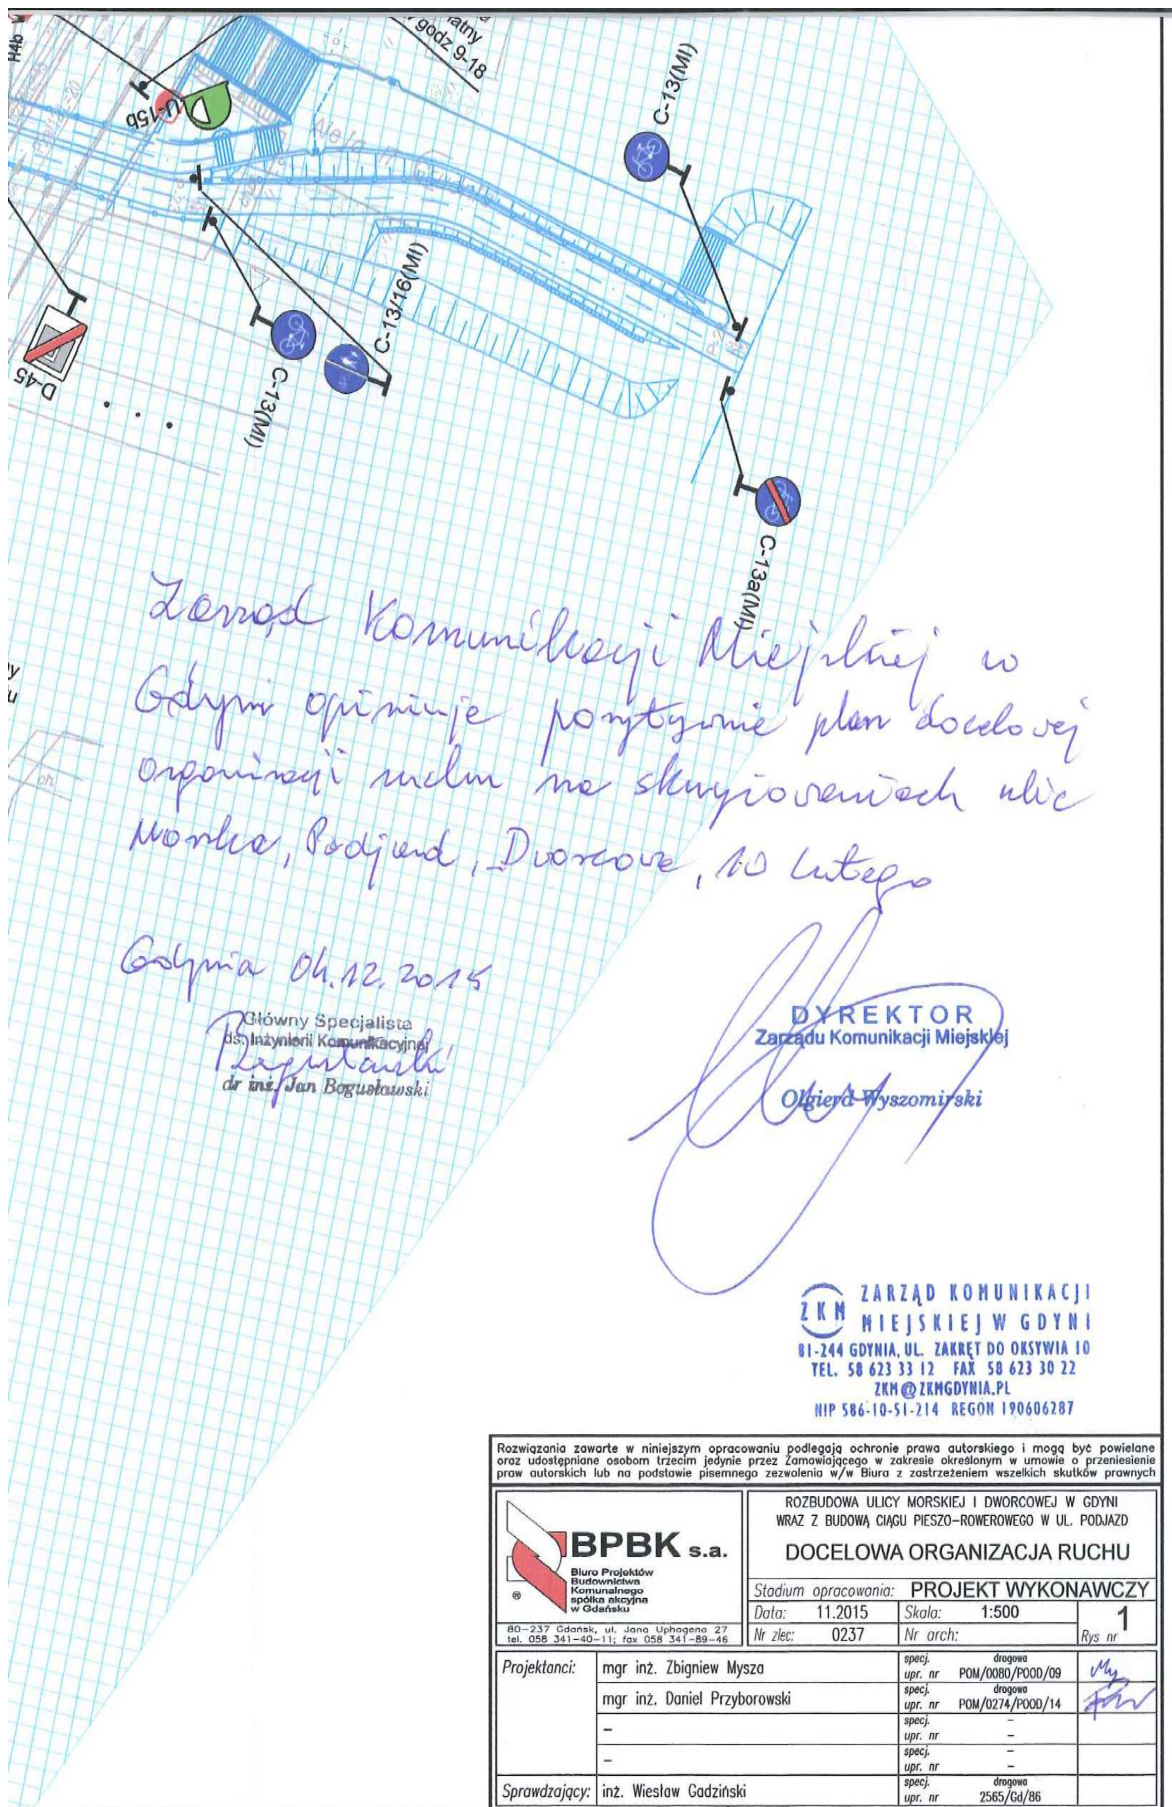 H4b
atny
godz 9-18
U-15b
C-13(MI)
C-13/16(MI)
C-13(MI)
D-45
C-13a(MI)
y
u
ch
Zarząd Komunikacji Miejskiej w
Gdyni opiniuje pozytywnie plan docelowej
organizacji ruchu na skrzyżowaniach ulic
Morska, Podjazd, Dworcowa, 10 Lutego
Gdynia 04.12.2015
Główny Specjalista
ds. Inżynierii Komunikacyjnej
dr inż. Jan Bogusławski
DYREKTOR
Zarządu Komunikacji Miejskiej
Olgierd Wyszomirski
ZKM ZARZĄD KOMUNIKACJI
MIEJSKIEJ W GDYNI
81-244 GDYNIA, UL. ZAKRĘT DO OKSYWIA 10
TEL. 58 623 33 12 FAX 58 623 30 22
ZKM@ZKMGDYNIA.PL
NIP 586-10-51-214 REGON 190606287
Rozwiązania zawarte w niniejszym opracowaniu podlegają ochronie prawa autorskiego i mogą być powielane
oraz udostępniane osobom trzecim jedynie przez Zamawiającego w zakresie określonym w umowie o przeniesienie
praw autorskich lub na podstawie pisemnego zezwolenia w/w Biura z zastrzeżeniem wszelkich skutków prawnych
BPBK s.a.
Biuro Projektów
Budownictwa
Komunalnego
spółka akcyjna
w Gdańsku
®
80-237 Gdańsk, ul. Jana Uphagena 27
tel. 058 341-40-11; fax 058 341-89-46
ROZBUDOWA ULICY MORSKIEJ I DWORCOWEJ W GDYNI
WRAZ Z BUDOWĄ CIĄGU PIESZO-ROWEROWEGO W UL. PODJAZD
DOCELOWA ORGANIZACJA RUCHU
Stadium opracowania: PROJEKT WYKONAWCZY
Data: 11.2015 Skala: 1:500
Nr zlec: 0237 Nr arch: Rys nr 1
Projektanci: mgr inż. Zbigniew Mysza specj. drogowa
upr. nr POM/0080/POOD/09
mgr inż. Daniel Przyborowski specj. drogowa
upr. nr POM/0274/POOD/14
- specj. -
upr. nr -
- specj. -
upr. nr -
Sprawdzający: inż. Wiesław Gadziński specj. drogowa
upr. nr 2565/Gd/86